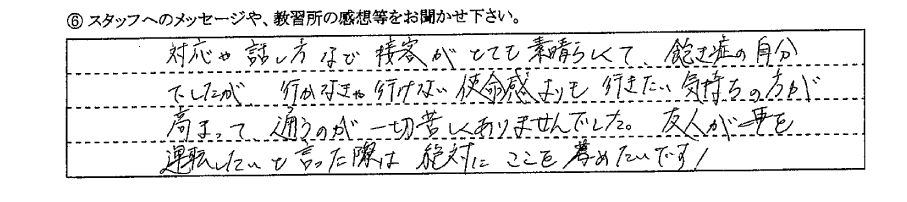 ⑥ スタッフへのメッセージや、教習所の感想等をお聞かせ下さい。
対応や話し方など接客がとても素晴らしくて、飽き症の自分
でしたが、行かなきゃ行けない使命感よりも行きたい気持ちの方が
高まって、通うのが一切苦しくありませんでした。友人が車を
運転したいと言った際は絶対にここを薦めたいです!